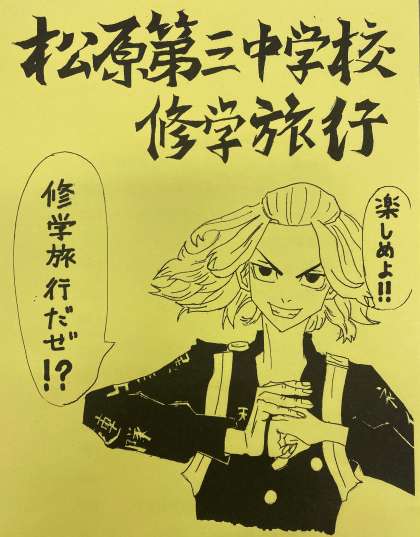 松原第三中学校
修学旅行
楽しめよ!!
修学旅行だぜ!?